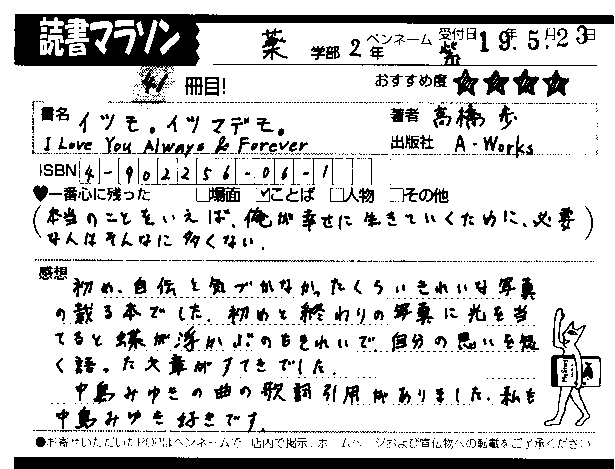 読書マラソン
薬 学部 2年 ペンネーム 紫 受付日 19年5月23日
41 冊目! おすすめ度 ★★★★
書名 イツモ。イツマデモ。
I Love You Always & Forever
著者 高橋 歩
出版社 A-Works
ISBN 4-902256-06-1
♥一番心に残った □場面 ☑ことば □人物 □その他
(本当のことをいえば、俺が幸せに生きていくために、必要
な人はそんなに多くない.)
感想
初め、自伝と気づかなかったくらいきれいな写真
の載る本でした。初めと終わりの写真に光を当
てると蝶が浮かぶのもきれいで、自分の思いを短
く語った文章がすてきでした。
中島みゆきの曲の歌詞引用がありました。私も
中島みゆき好きです。
●お寄せいただいたPOPはペンネームで、店内で掲示、ホームページおよび宣伝物への転載をご了承ください